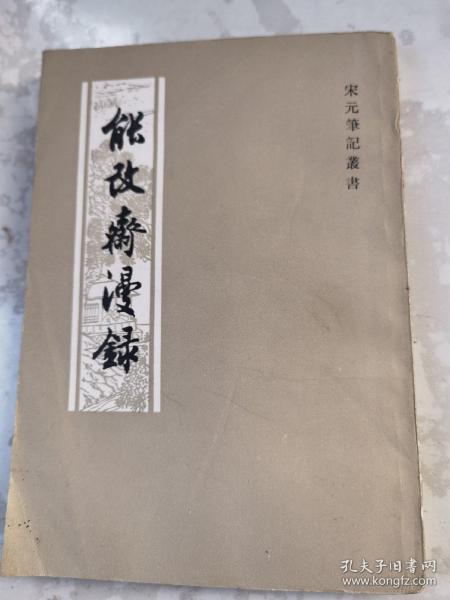 宋元筆記叢書
能改齋漫録
孔夫子旧书网
www.kongfz.com